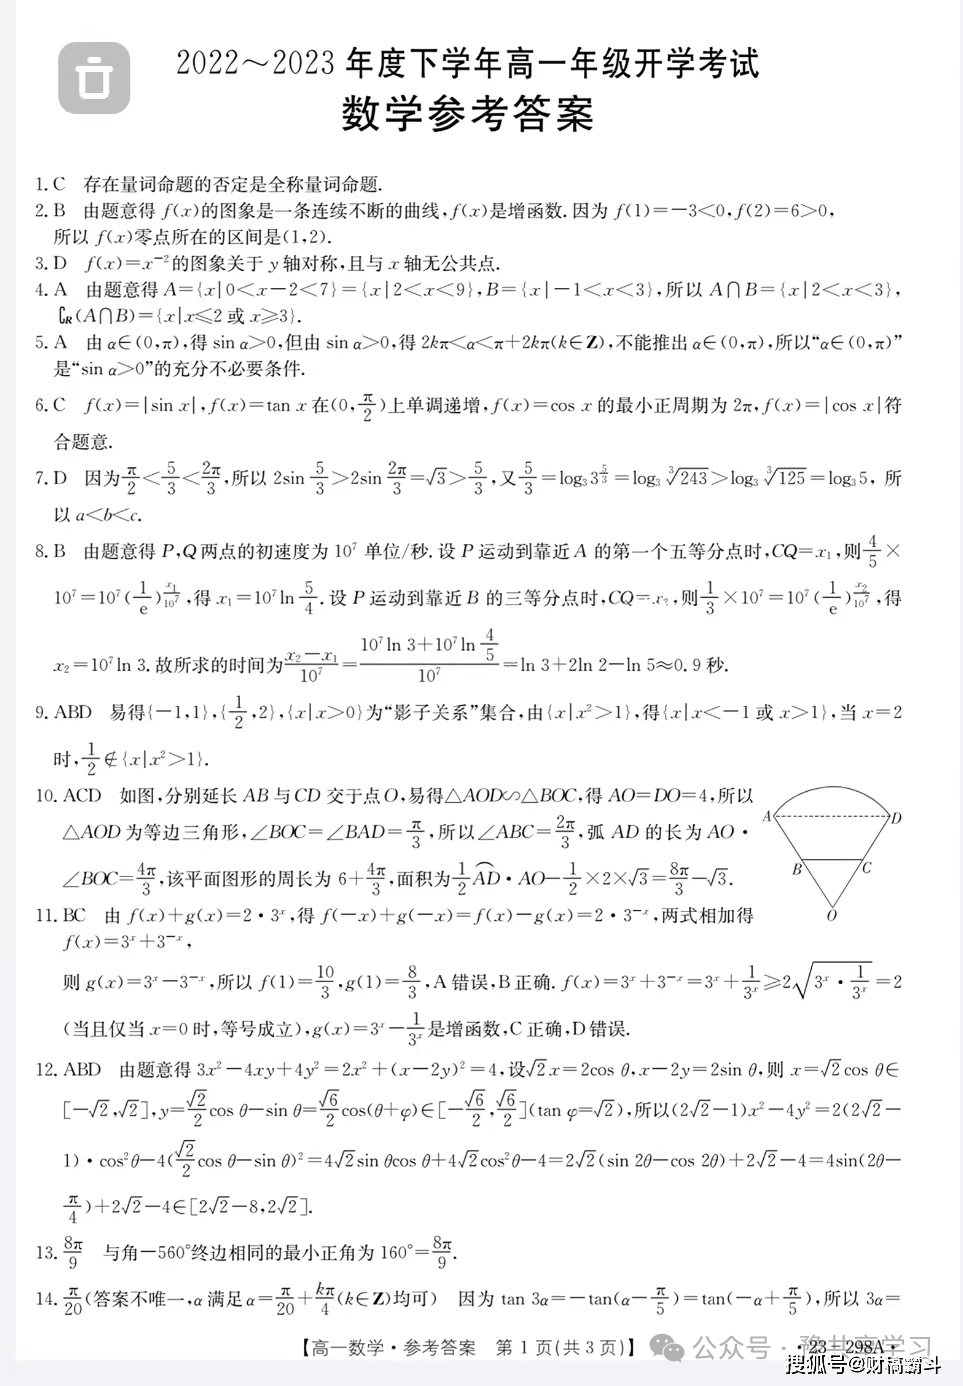 2022～2023 年度下学年高一年级开学考试
数学参考答案
1. C 存在量词命题的否定是全称量词命题.
2. B 由题意得 f(x)的图象是一条连续不断的曲线,f(x)是增函数.因为 f(1)=-3<0,f(2)=6>0,
所以 f(x)零点所在的区间是(1,2).
3. D f(x)=x⁻²的图象关于 y 轴对称,且与 x 轴无公共点.
4. A 由题意得 A={x|0<x-2<7}={x|2<x<9},B={x|-1<x<3},所以 A∩B={x|2<x<3},
∁R(A∩B)={x|x≤2 或 x≥3}.
5. A 由 α∈(0,π),得 sin α>0,但由 sin α>0,得 2kπ<α<π+2kπ(k∈Z),不能推出 α∈(0,π),所以“α∈(0,π)”
是“sin α>0”的充分不必要条件.
6. C f(x)=|sin x|,f(x)=tan x 在(0,π/2)上单调递增,f(x)=cos x 的最小正周期为 2π,f(x)=|cos x|符
合题意.
7. D 因为π/2<5/3<2π/3,所以 2sin 5/3>2sin 2π/3=√3>5/3,又5/3=log₃3^(5/3)=log₃ ∛243>log₃ ∛125=log₃5, 所
以 a<b<c.
8. B 由题意得 P,Q 两点的初速度为 10⁷ 单位/秒.设 P 运动到靠近 A 的第一个五等分点时,CQ=x₁,则4/5×
10⁷=10⁷(1/e)^(x₁/10⁷),得 x₁=10⁷ln 5/4.设 P 运动到靠近 B 的三等分点时,CQ=x₂,则1/3×10⁷=10⁷(1/e)^(x₂/10⁷),得
x₂=10⁷ln 3.故所求的时间为(x₂-x₁)/10⁷=(10⁷ln 3+10⁷ln 4/5)/10⁷=ln 3+2ln 2-ln 5≈0.9 秒.
9. ABD 易得{-1,1},{1/2,2},{x|x>0}为“影子关系”集合,由{x|x²>1},得{x|x<-1 或 x>1},当 x=2
时,1/2∉{x|x²>1}.
10. ACD 如图,分别延长 AB 与 CD 交于点 O,易得△AOD∽△BOC,得 AO=DO=4,所以
△AOD 为等边三角形,∠BOC=∠BAD=π/3,所以∠ABC=2π/3,弧 AD 的长为 AO·
∠BOC=4π/3,该平面图形的周长为 6+4π/3,面积为1/2 A͡D·AO-1/2×2×√3=8π/3-√3.
A
D
B
C
O
11. BC 由 f(x)+g(x)=2·3ˣ,得 f(-x)+g(-x)=f(x)-g(x)=2·3⁻ˣ,两式相加得
f(x)=3ˣ+3⁻ˣ,
则 g(x)=3ˣ-3⁻ˣ,所以 f(1)=10/3,g(1)=8/3,A 错误,B 正确. f(x)=3ˣ+3⁻ˣ=3ˣ+1/3ˣ≥2√(3ˣ·1/3ˣ)=2
(当且仅当 x=0 时,等号成立),g(x)=3ˣ-1/3ˣ是增函数,C 正确,D 错误.
12. ABD 由题意得 3x²-4xy+4y²=2x²+(x-2y)²=4,设√2x=2cos θ,x-2y=2sin θ,则 x=√2cos θ∈
[-√2,√2],y=√2/2cos θ-sin θ=√6/2cos(θ+φ)∈[-√6/2,√6/2](tan φ=√2),所以(2√2-1)x²-4y²=2(2√2-
1)·cos²θ-4(√2/2cos θ-sin θ)²=4√2sin θcos θ+4√2cos²θ-4=2√2(sin 2θ-cos 2θ)+2√2-4=4sin(2θ-
π/4)+2√2-4∈[2√2-8,2√2].
13. 8π/9 与角-560°终边相同的最小正角为 160°=8π/9.
14. π/20(答案不唯一,α 满足 α=π/20+kπ/4(k∈Z)均可) 因为 tan 3α=-tan(α-π/5)=tan(-α+π/5),所以 3α=
【高一数学·参考答案 第 1 页(共 3 页)】
·23-298A·
公众号·豫共享学习
搜狐号@财稿霸斗